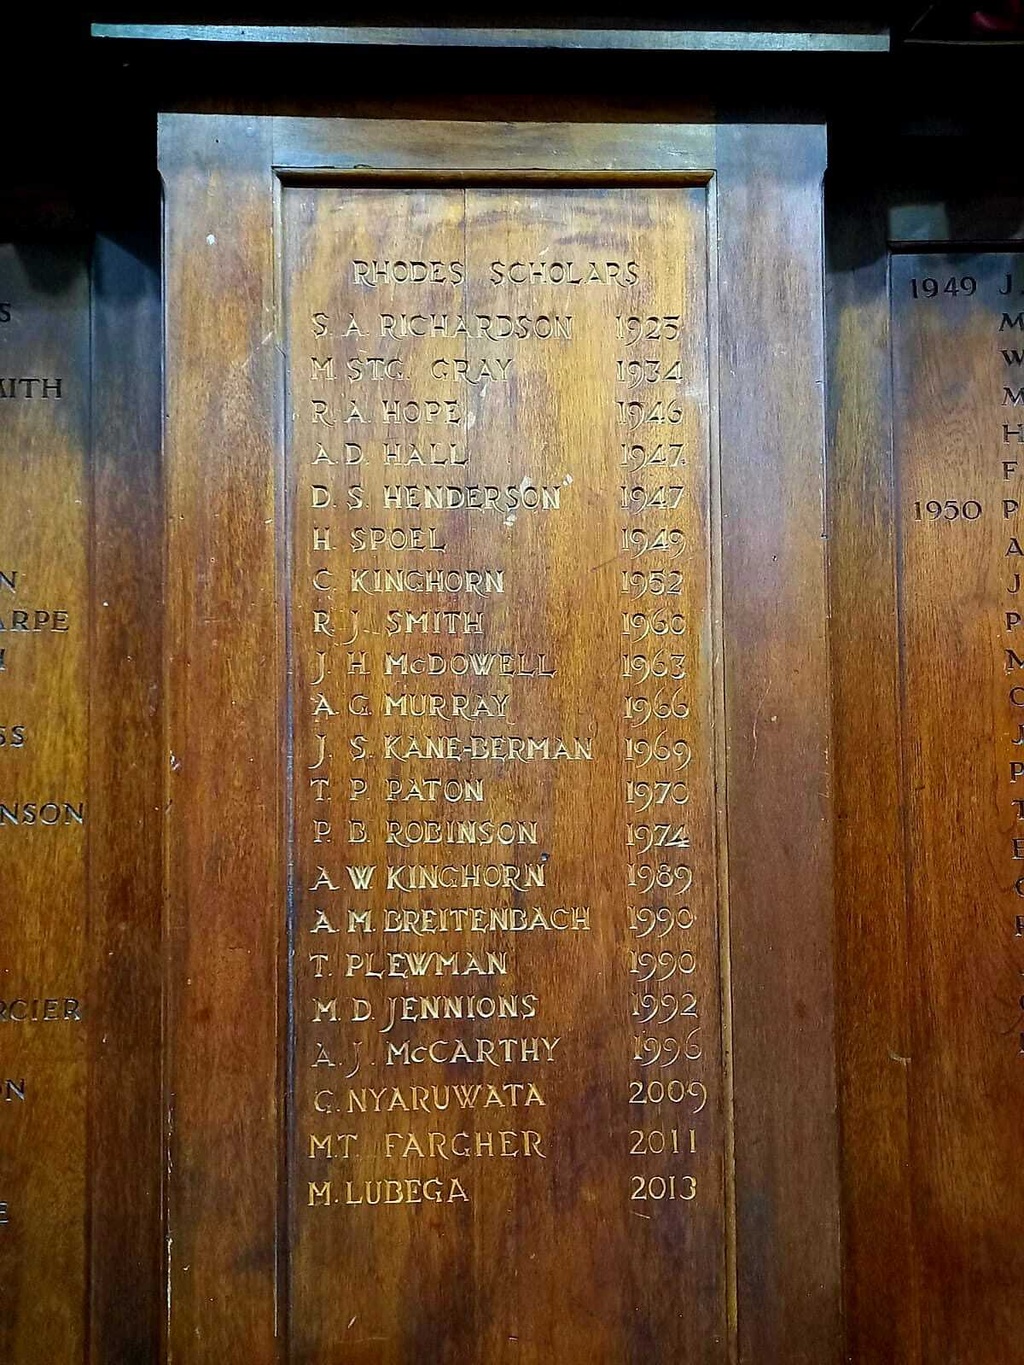 RHODES SCHOLARS
S. A. RICHARDSON 1925
M. STG. GRAY 1934
R. A. HOPE 1946
A. D. HALL 1947.
D. S. HENDERSON 1947
H. SPOEL 1949
C. KINGHORN 1952
R. J. SMITH 1960
J. H. McDOWELL 1963
A. G. MURRAY 1966
J. S. KANE-BERMAN 1969
T. P. PATON 1970
P. B. ROBINSON 1974
A. W. KINGHORN 1989
A. M. BREITENBACH 1990
T. PLEWMAN 1990
M. D. JENNIONS 1992
A. J. McCARTHY 1996
G. NYARUWATA 2009
M.T. FARGHER 2011
M. LUBEGA 2013
1949 J.
1950 P